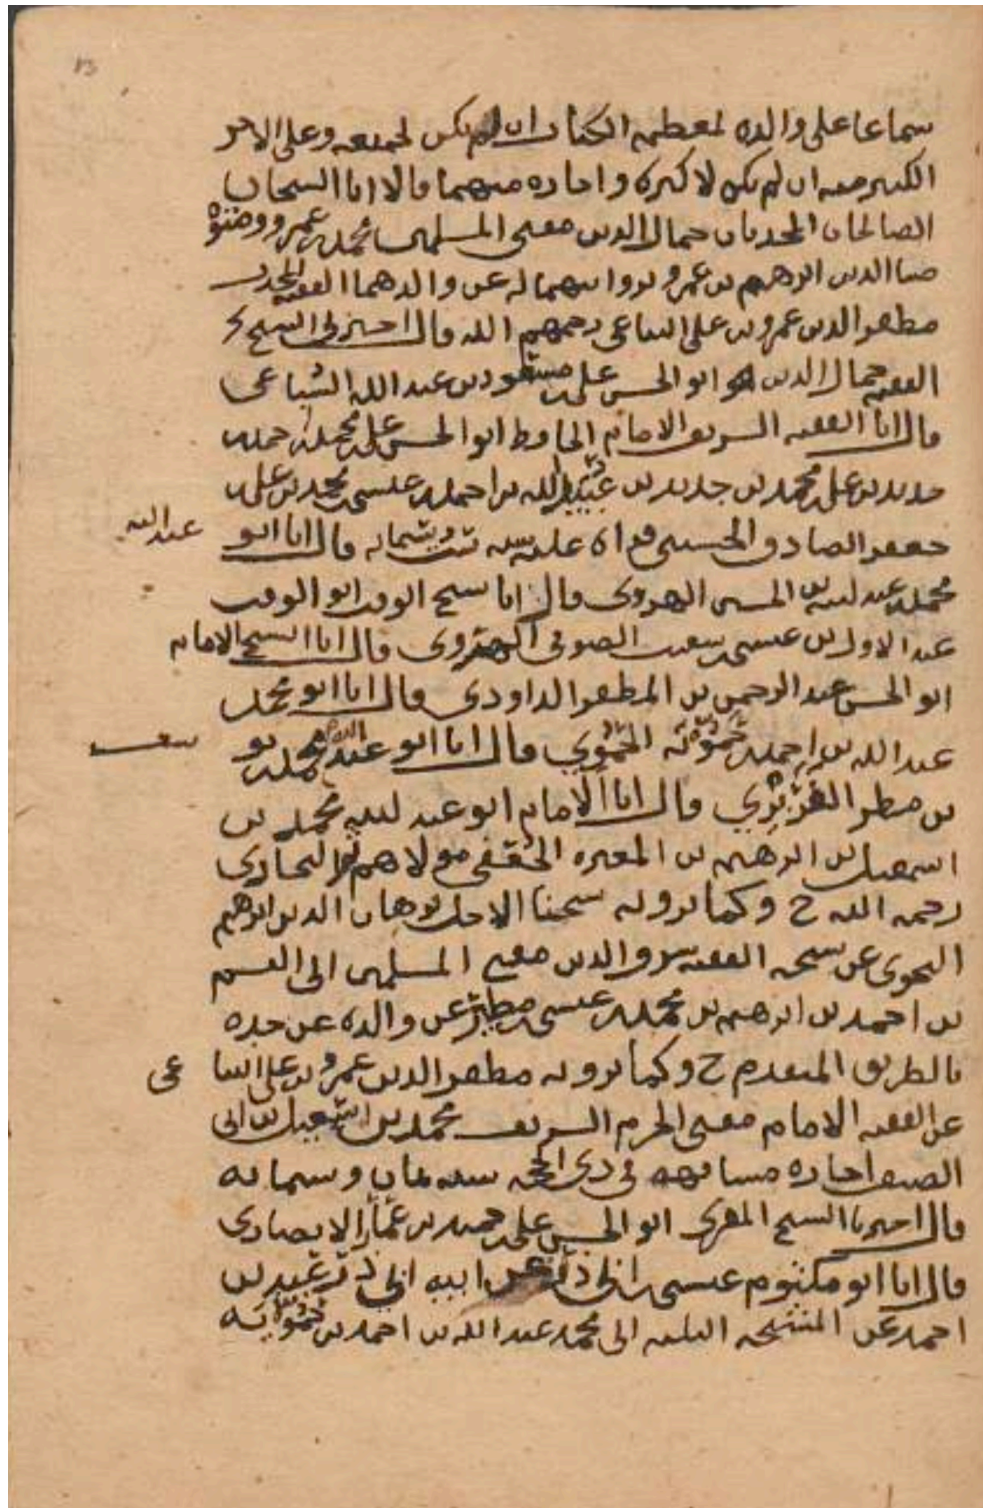 ١٣
سماعا على والده لمعظم الكتاب ان لم يكن لجميعه وعلى الاخر
الكثير منه ان لم يكن لاكثره واجازة منهما قالا انا الشيخان
الصالحان المحدثان جمال الدين مفتي المسلمين محمد بن عمرو وصنوه
ضيا الدين ابرهيم بن عمرو بروايتهما له عن والدهما الفقيه المحدث
مظفر الدين عمرو بن علي التباعي رحمهم الله قال اخبرني الشيخ
الفقيه جمال الدين ابو الحسن علي بن مسعود بن عبد الله الشباعي
قال انا الفقيه الشريف الامام الحافظ ابو الحسن علي بن محمد بن احمد بن
جديد بن علي بن محمد بن جديد بن عبد الله بن احمد بن عيسى بن محمد بن علي بن
جعفر الصادق الحسيني قراة عليه سنة ستمائة قال انا ابو
عبد الله
محمد عبد الله بن الهروي قال انا شيخ الوقت ابو الوقت
عبد الاول بن عيسى بن شعيب الصوفي الهروي قال انا الشيخ الامام
ابو الحسن عبد الرحمن بن المظفر الداودي قال انا ابو محمد
عبد الله بن احمد بن حمويه الحموي قال انا ابو عبد الله محمد بن يو
سف
بن مطر الفربري قال انا الامام ابو عبد الله محمد بن
اسمعيل بن ابرهيم بن المغيرة الجعفي مولاهم البخاري
رحمه الله ح وكما يرويه شيخنا الاجل برهان الدين ابرهيم
النحوي عن شيخه الفقيه الدين مفتي المسلمين ابي القسم
بن احمد بن ابرهيم بن محمد بن عيسى بن مطير عن والده عن جده
بالطريق المتقدم ح وكما يرويه مظفر الدين عمرو بن علي التبا
عي
عن الفقيه الامام مفتي الحرم الشريف محمد بن اسمعيل بن ابي
الصيف اجازة مشافهة في ذي الحجة سنة ثمان وستمائة
قال اخبرنا الشيخ المقري ابو الحسن علي بن حميد بن عمار الانصاري
قال انا ابو مكتوم عيسى بن ابي ذر عن ابيه ابي ذر عبد بن
احمد عن المشيخة الثلثة ابي محمد عبد الله بن احمد بن حمويه